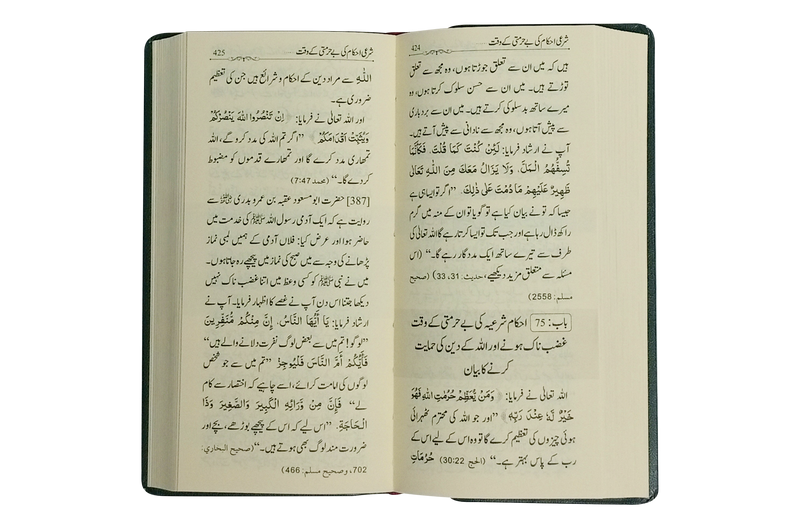 424 شرعی احکام کی بے حرمتی کے وقت
ہیں کہ میں ان سے تعلق جوڑتا ہوں، وہ مجھ سے تعلق
توڑتے ہیں۔ میں ان سے حسن سلوک کرتا ہوں، وہ
میرے ساتھ بدسلوکی کرتے ہیں۔ میں ان سے بردباری
سے پیش آتا ہوں، وہ مجھ سے نادانی سے پیش آتے ہیں۔
آپ نے ارشاد فرمایا: لَئِنْ كُنْتَ كَمَا قُلْتَ، فَكَأَنَّمَا
تُسِفُّهُمُ الْمَلَّ، وَلَا يَزَالُ مَعَكَ مِنَ اللهِ تَعَالَى
ظَهِيرٌ عَلَيْهِمْ مَا دُمْتَ عَلَى ذٰلِكَ، ”اگر تو ایسا ہی ہے
جیسا کہ تو نے بیان کیا ہے تو گویا تو ان کے منہ میں گرم
راکھ ڈال رہا ہے اور جب تک تو ایسا کرتا رہے گا اللہ تعالیٰ کی
طرف سے تیرے ساتھ ایک مددگار رہے گا۔“ (اس
مسئلہ سے متعلق مزید دیکھیے، حدیث: 31، 33) (صحیح
مسلم: 2558)
باب: 75 احکام شرعیہ کی بے حرمتی کے وقت
غضب ناک ہونے اور اللہ کے دین کی حمایت
کرنے کا بیان
اللہ تعالیٰ نے فرمایا: وَمَنْ يُّعَظِّمْ حُرُمٰتِ اللهِ فَهُوَ
خَيْرٌ لَّهٗ عِنْدَ رَبِّهٖ ”اور جو اللہ کی محترم ٹھہرائی
ہوئی چیزوں کی تعظیم کرے گا تو وہ اس کے لیے اس کے
رب کے پاس بہتر ہے۔“ (الحج 30:22) حُرُمَات
425 شرعی احکام کی بے حرمتی کے وقت
اللہ سے مراد دین کے احکام و شرائع ہیں جن کی تعظیم
ضروری ہے۔
اور اللہ تعالیٰ نے فرمایا: اِنْ تَنْصُرُوا اللهَ يَنْصُرْكُمْ
وَيُثَبِّتْ اَقْدَامَكُمْ ”اگر تم اللہ کی مدد کرو گے، اللہ
تمھاری مدد کرے گا اور تمھارے قدموں کو مضبوط
کر دے گا۔“ (محمد 7:47)
[387] حضرت ابو مسعود عقبہ بن عمرو بدری ؓ سے
روایت ہے کہ ایک آدمی رسول اللہ ﷺ کی خدمت میں
حاضر ہوا اور عرض کیا: فلاں آدمی کے ہمیں لمبی نماز
پڑھانے کی وجہ سے میں صبح کی نماز میں پیچھے رہ جاتا ہوں۔
میں نے نبی ﷺ کو کسی وعظ میں اتنا غضب ناک نہیں
دیکھا جتنا اس دن آپ نے غصے کا اظہار فرمایا۔ آپ نے
ارشاد فرمایا: يَا أَيُّهَا النَّاسُ، إِنَّ مِنْكُمْ مُنَفِّرِينَ
”لوگو! تم میں سے بعض لوگ نفرت دلانے والے ہیں“
فَأَيُّكُمْ أَمَّ النَّاسَ فَلْيُوجِزْ ”تم میں سے جو شخص
لوگوں کی امامت کرائے، اسے چاہیے کہ اختصار سے کام
لے“ فَإِنَّ مِنْ وَرَائِهِ الْكَبِيرَ وَالصَّغِيرَ وَذَا
الْحَاجَةِ، ”اس لیے کہ اس کے پیچھے بوڑھے، بچے اور
ضرورت مند لوگ بھی ہوتے ہیں۔“ (صحیح البخاری
702، وصحیح مسلم: 466)